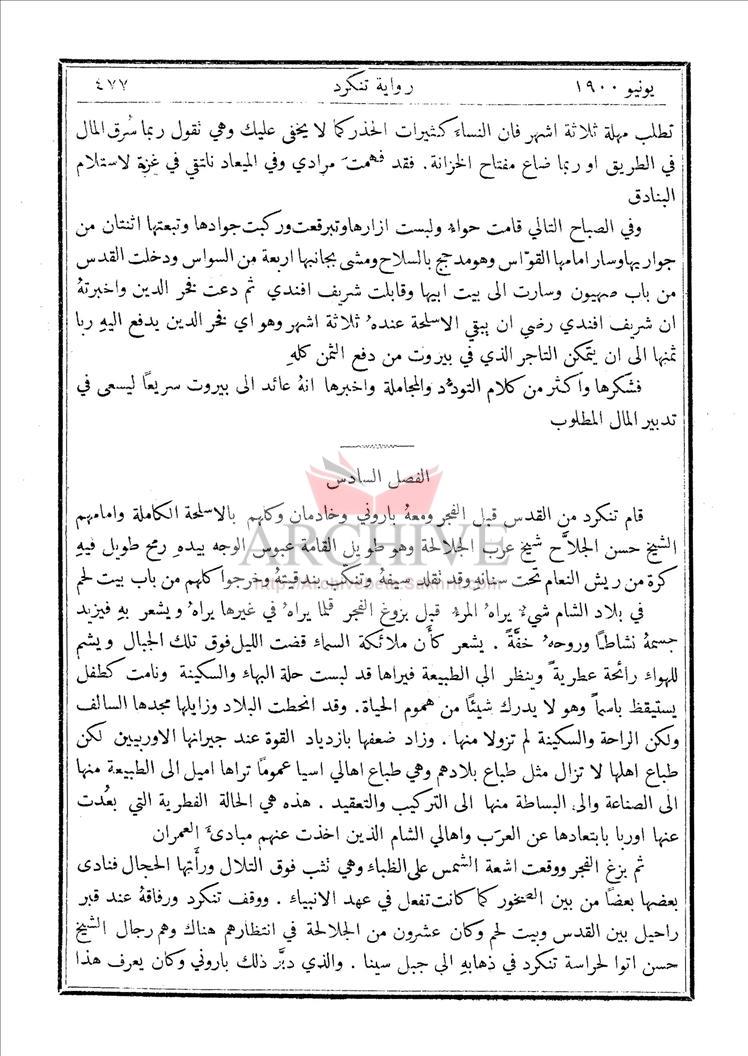 يونيو ١٩٠٠ رواية تنكرد ٤٧٧
تطلب مهلة ثلاثة اشهر فان النساء كثيرات الحذر كما لا يخفى عليك وهي تقول ربما سُرق المال
في الطريق او ربما ضاع مفتاح الخزانة . فقد فهمتَ مرادي وفي الميعاد نلتقي في غزة لاستلام
البنادق
وفي الصباح التالي قامت حواء ولبست ازارها وتبرقعت وركبت جوادها وتبعتها اثنتان من
جواريها وسار امامها القوَّاس وهو مدجج بالسلاح ومشى بجانبها اربعة من السواس ودخلت القدس
من باب صهيون وسارت الى بيت ابيها وقابلت شريف افندي ثم دعت فخر الدين واخبرتهُ
ان شريف افندي رضي ان يبقي الاسلحة عندهُ ثلاثة اشهر وهو اي فخر الدين يدفع اليهِ ربا
ثمنها الى ان يتمكن التاجر الذي في بيروت من دفع الثمن كلهِ
فشكرها واكثر من كلام التودُّد والمجاملة واخبرها انهُ عائد الى بيروت سريعاً ليسعى في
تدبير المال المطلوب
الفصل السادس
قام تنكرد من القدس قبل الفجر ومعهُ باروني وخادمان وكلهم بالاسلحة الكاملة وامامهم
ARCHIVE
الشيخ حسن الجلاَّح شيخ عرب الجلالحة وهو طويل القامة عبوس الوجه بيدهِ رمح طويل فيهِ
كرة من ريش النعام تحت سنانهِ وقد نقلد سيفهُ وتنكَّب بندقيتهُ وخرجوا كلهم من باب بيت لحم
http://Archivebeta.Sakhrit.com
في بلاد الشام شيءٌ يراهُ المرءُ قبل بزوغ الفجر قلما يراهُ في غيرها يراهُ ويشعر بهِ فيزيد
جسمهُ نشاطاً وروحهُ خفَّةً . يشعر كأَن ملائكة السماء قضت الليل فوق تلك الجبال ويشم
للهواء رائحة عطريةً وينظر الى الطبيعة فيراها قد لبست حلة البهاء والسكينة ونامت كطفل
يستيقظ باسماً وهو لا يدرك شيئًا من هموم الحياة . وقد انحطت البلاد وزايلها مجدها السالف
ولكن الراحة والسكينة لم تزولا منها . وزاد ضعفها بازدياد القوة عند جيرانها الاوربيين لكن
طباع اهلها لا تزال مثل طباع بلادهم وهي طباع اهالي اسيا عموماً تراها اميل الى الطبيعة منها
الى الصناعة والى البساطة منها الى التركيب والتعقيد . هذه هي الحالة الفطرية التي بعُدت
عنها اوربا بابتعادها عن العرَب واهالي الشام الذين اخذت عنهم مبادئَ العمران
ثم بزغ الفجر ووقعت اشعة الشمس على الظباء وهي تثب فوق التلال ورأَتها الحجال فنادى
بعضها بعضاً من بين الصخور كما كانت تفعل في عهد الانبياء . ووقف تنكرد ورفاقهُ عند قبر
راحيل بين القدس وبيت لحم وكان عشرون من الجلالحة في انتظارهم هناك وهم رجال الشيخ
حسن اتوا لحراسة تنكرد في ذهابهِ الى جبل سينا . والذي دبَّر ذلك باروني وكان يعرف هذا